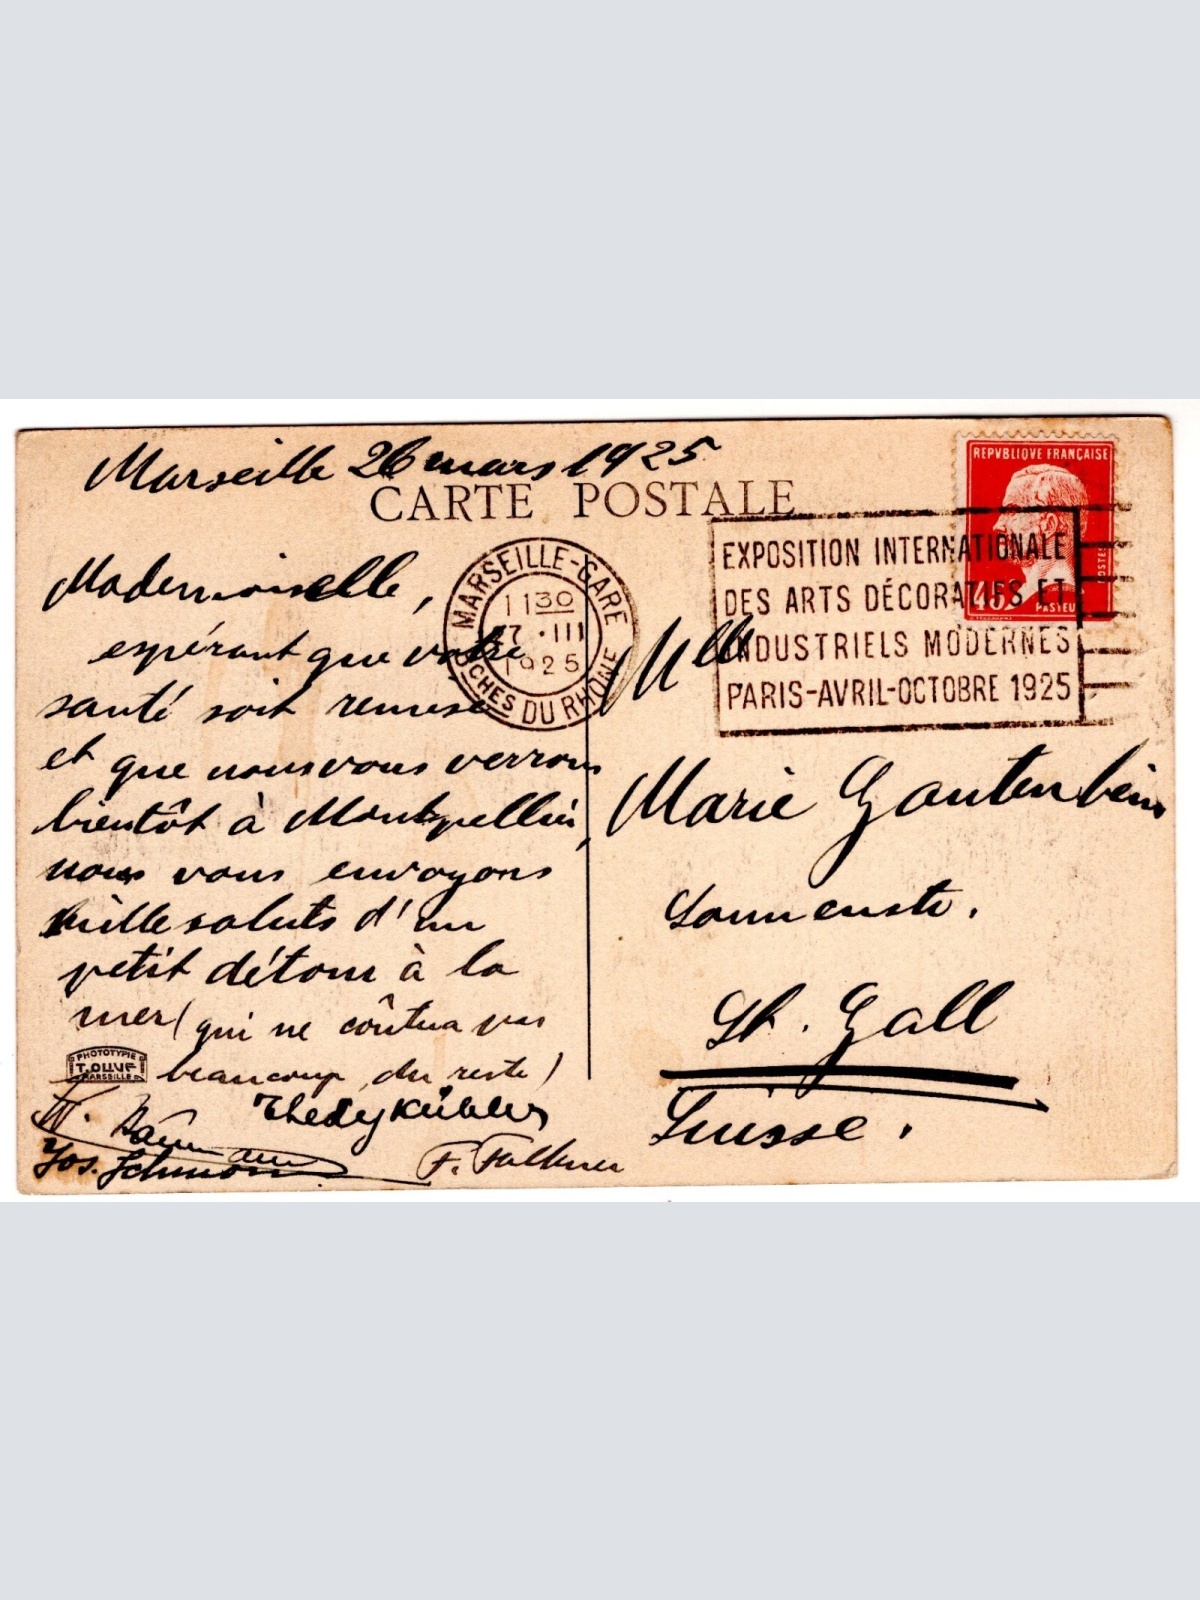 Marseille 26 mars 1925
CARTE POSTALE
REPVBLIQVE FRANÇAISE
POSTES
45c
PASTEUR
EXPOSITION INTERNATIONALE
DES ARTS DÉCORATIFS ET
INDUSTRIELS MODERNES
PARIS-AVRIL-OCTOBRE 1925
MARSEILLE-GARE
1130
27 · III
1925
BCHES DU RHONE
Mademoiselle,
espérant que votre
santé soit remise
et que nous vous verrons
bientôt à Montpellier,
nous vous envoyons
mille saluts d'un
petit détour à la
mer (qui ne coûtera pas
beaucoup, du reste)
Thedy Kübler
Jos.
F. Falkner
PHOTOTYPIE
MARSEILLE
Mlle
Marie Gantenbein
Sonnenstr.
St. Gall
Suisse.